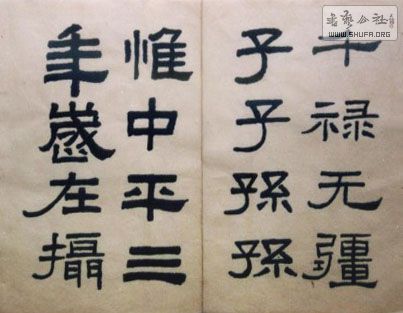 干禄无疆
子子孫孫
惟中平三
年歲在攝
書藝公社
WWW.SHUFA.ORG